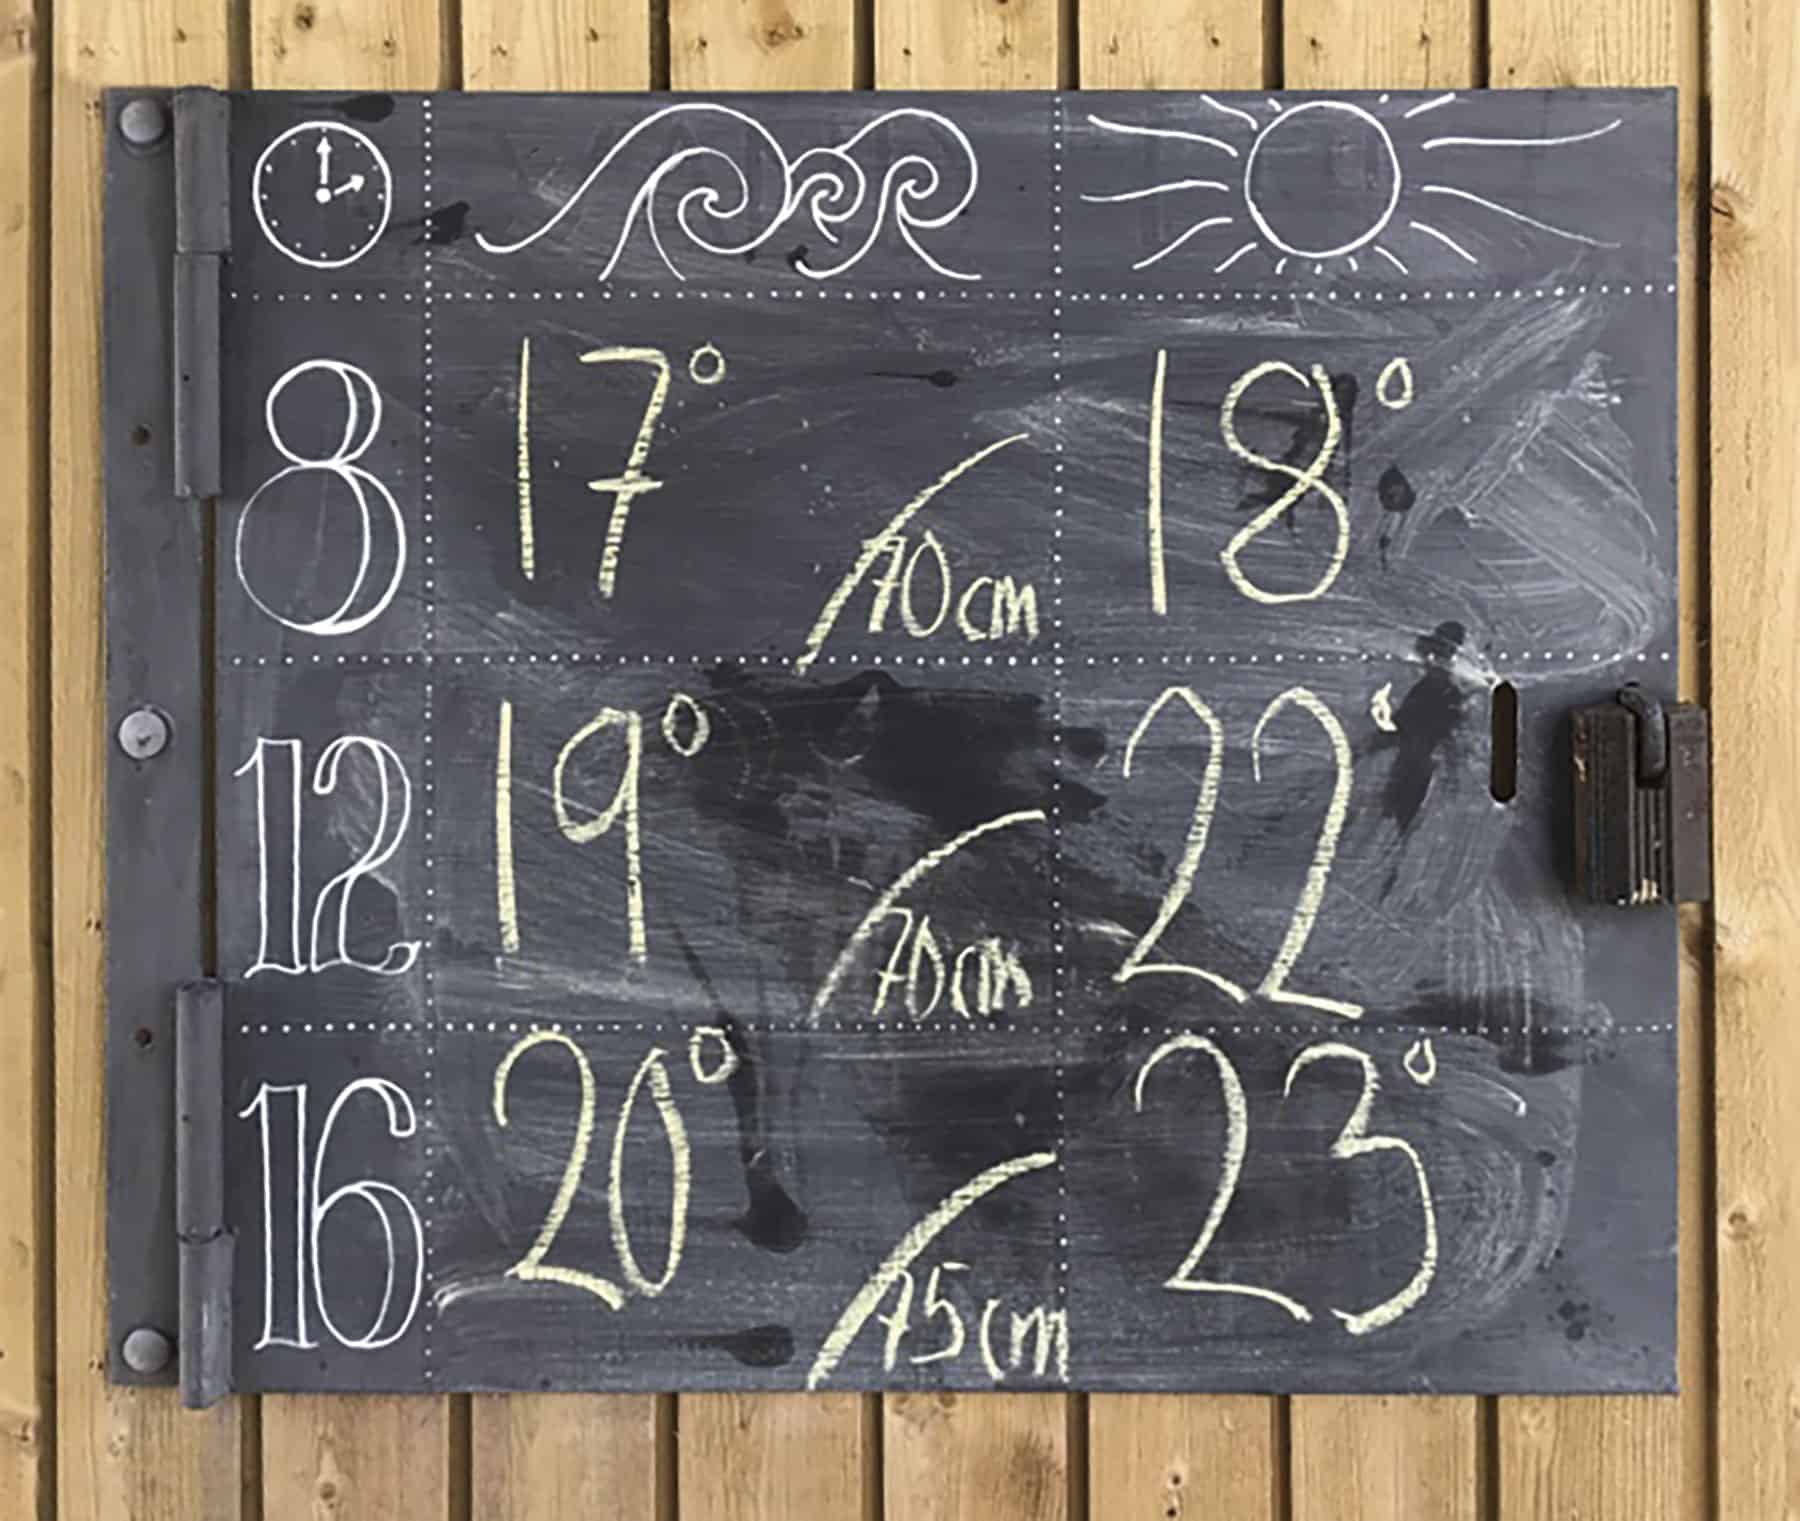 8 17° 70cm 18°
12 19° 70cm 22°
16 20° 75cm 23°